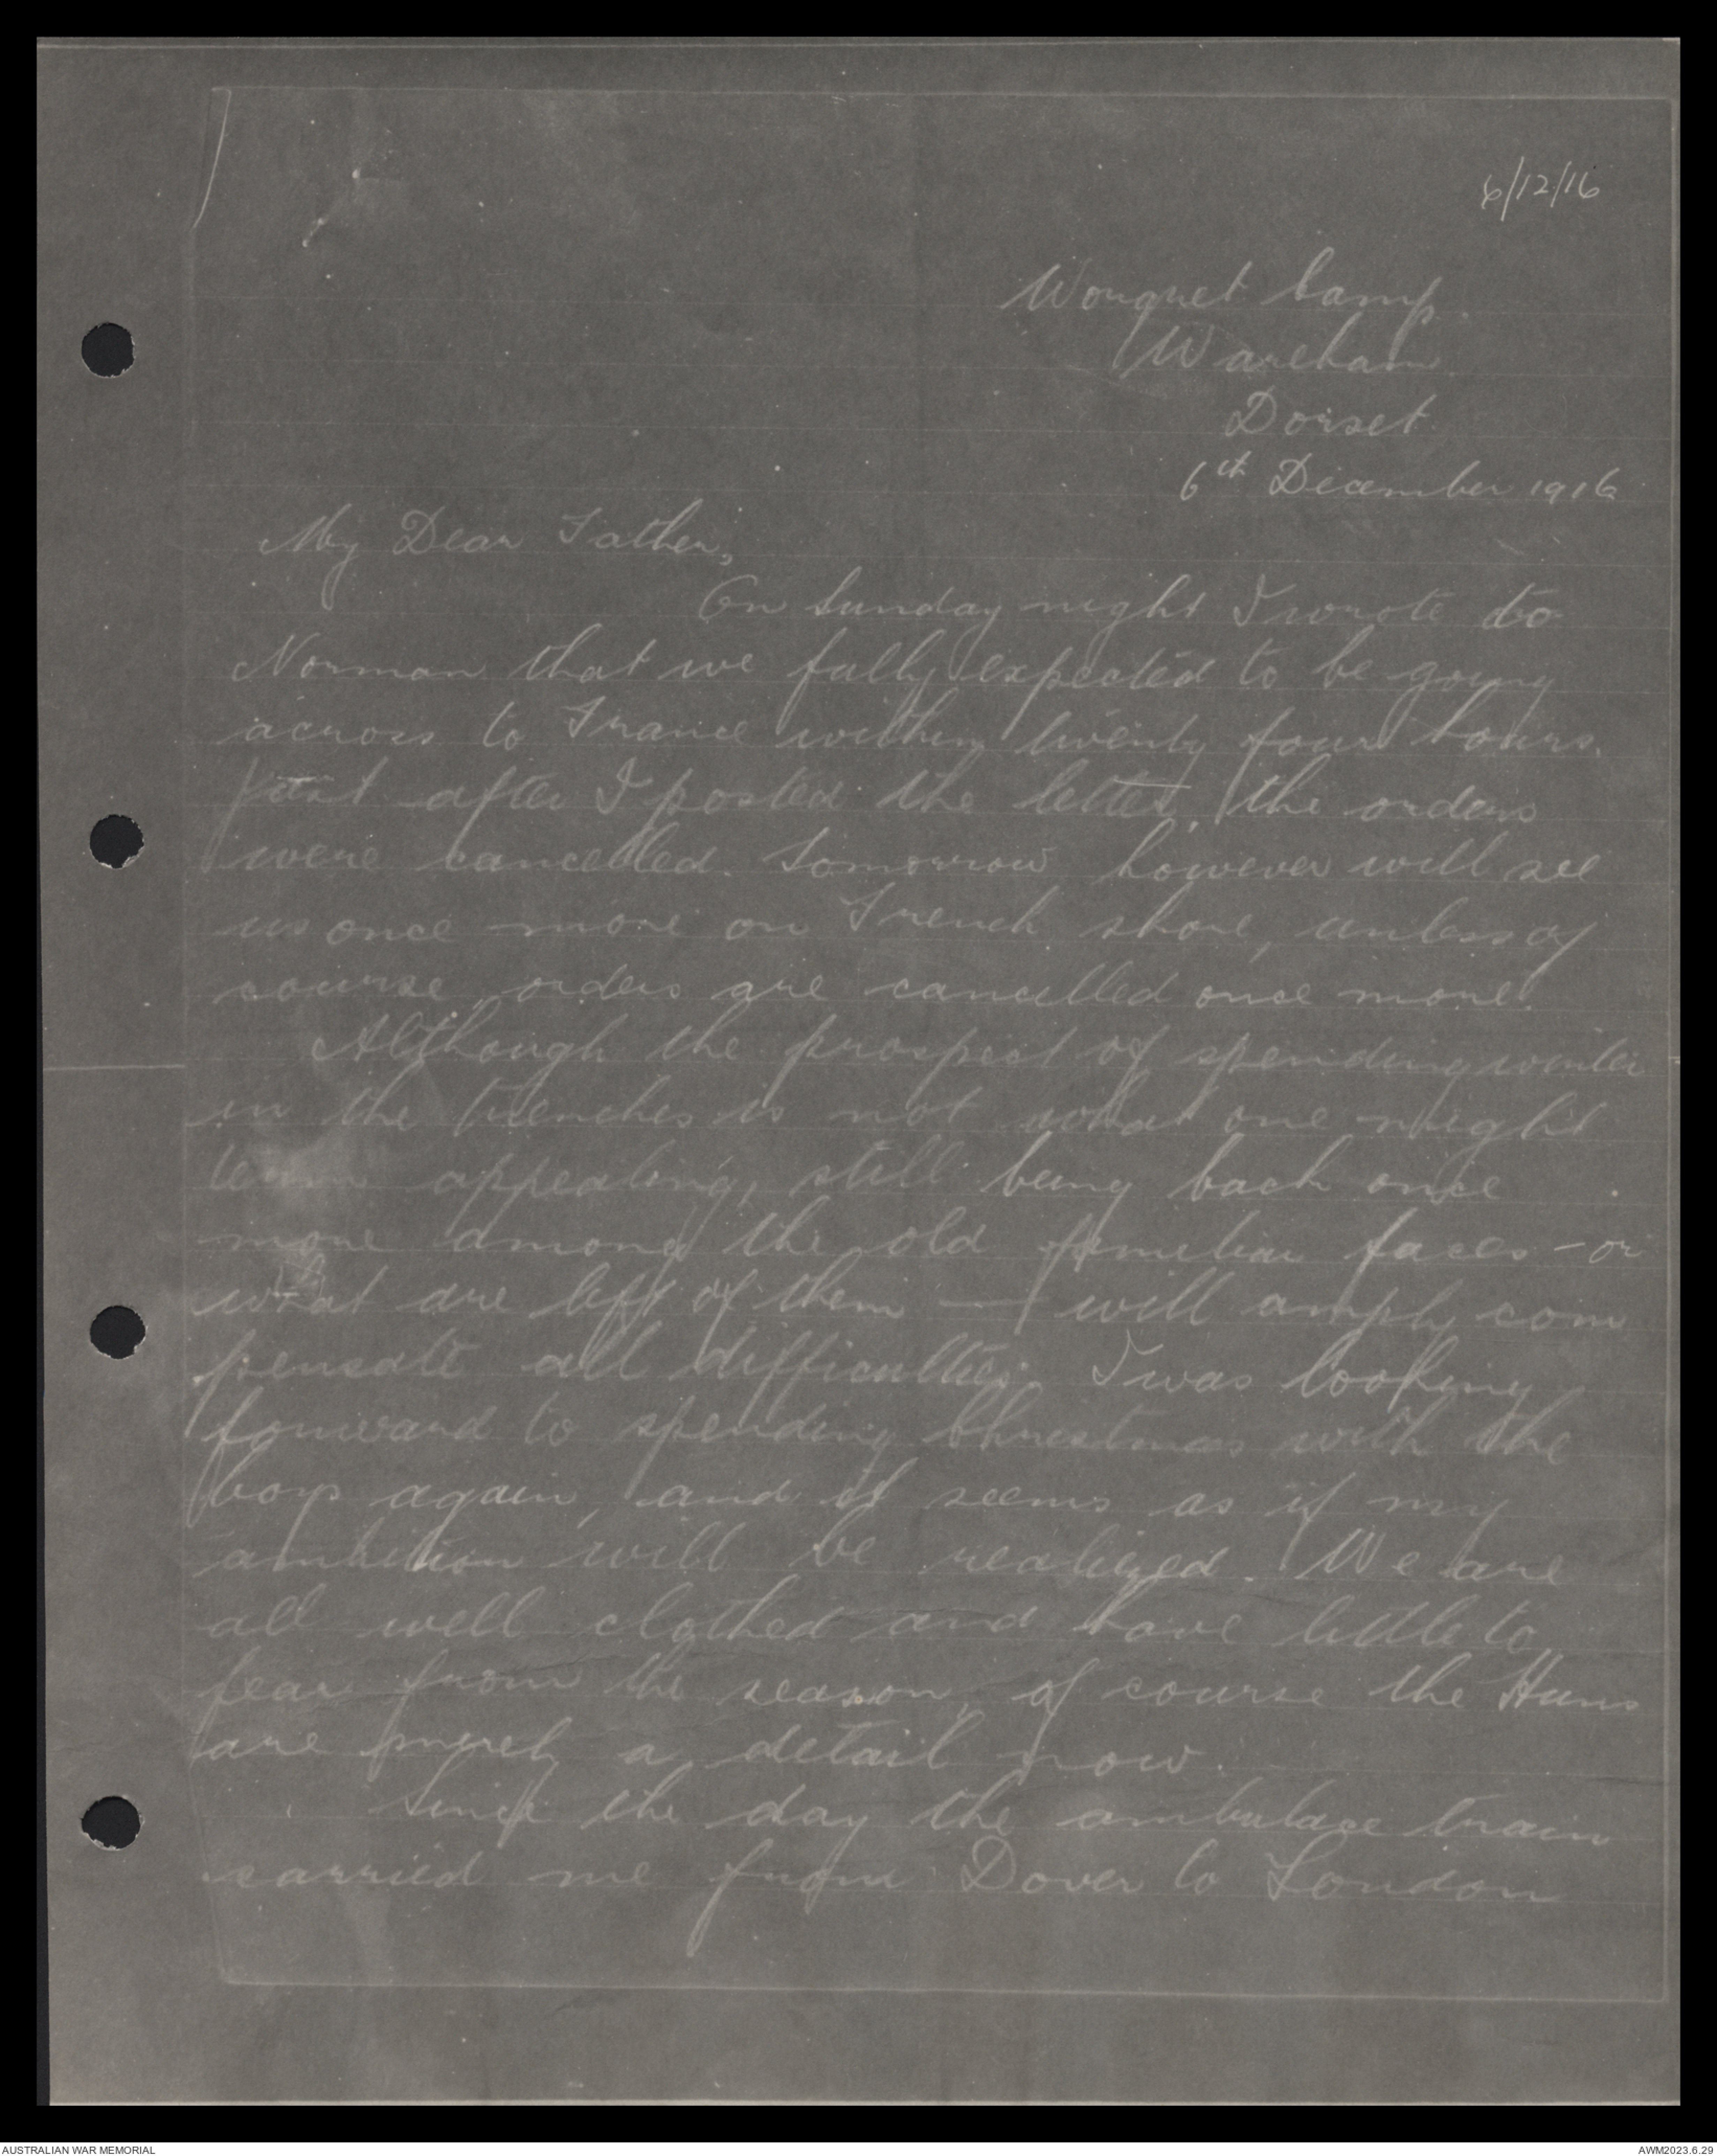 6/12/16
Worgret Camp.
Wareham.
Dorset.
6th December 1916
My Dear Father,
On Sunday night I wrote to
Norman that we fully expected to be going
across to France within twenty four hours.
Just after I posted the letter, the orders
were cancelled. Tomorrow however will see
us once more on French shore, unless of
course, orders are cancelled once more.
Although the prospect of spending winter
in the trenches is not what one might
term appealing, still being back once
more among the old familiar faces - or
what are left of them - will amply com
pensate all difficulties. I was looking
forward to spending Christmas with the
boys again, and it seems as if my
ambition will be realized. We are
all well clothed and have little to
fear from the season, of course the Huns
are merely a detail now.
Since the day the ambulace train
carried me from Dover to London
AUSTRALIAN WAR MEMORIAL
AWM2023.6.29